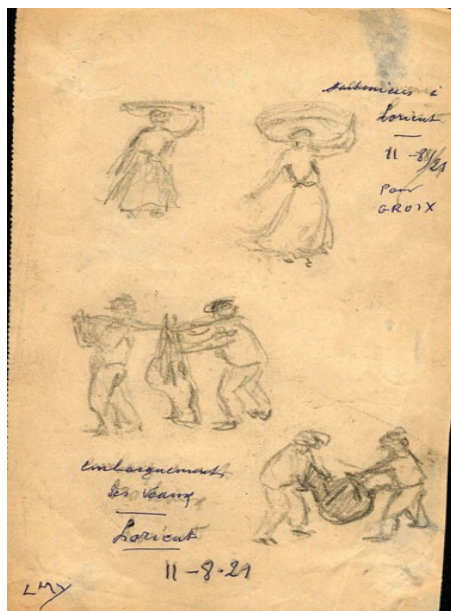 à
Lorient
11-8-29
Pour
GROIX
embarquement
des veaux
Lorient
11-8-29
LMY